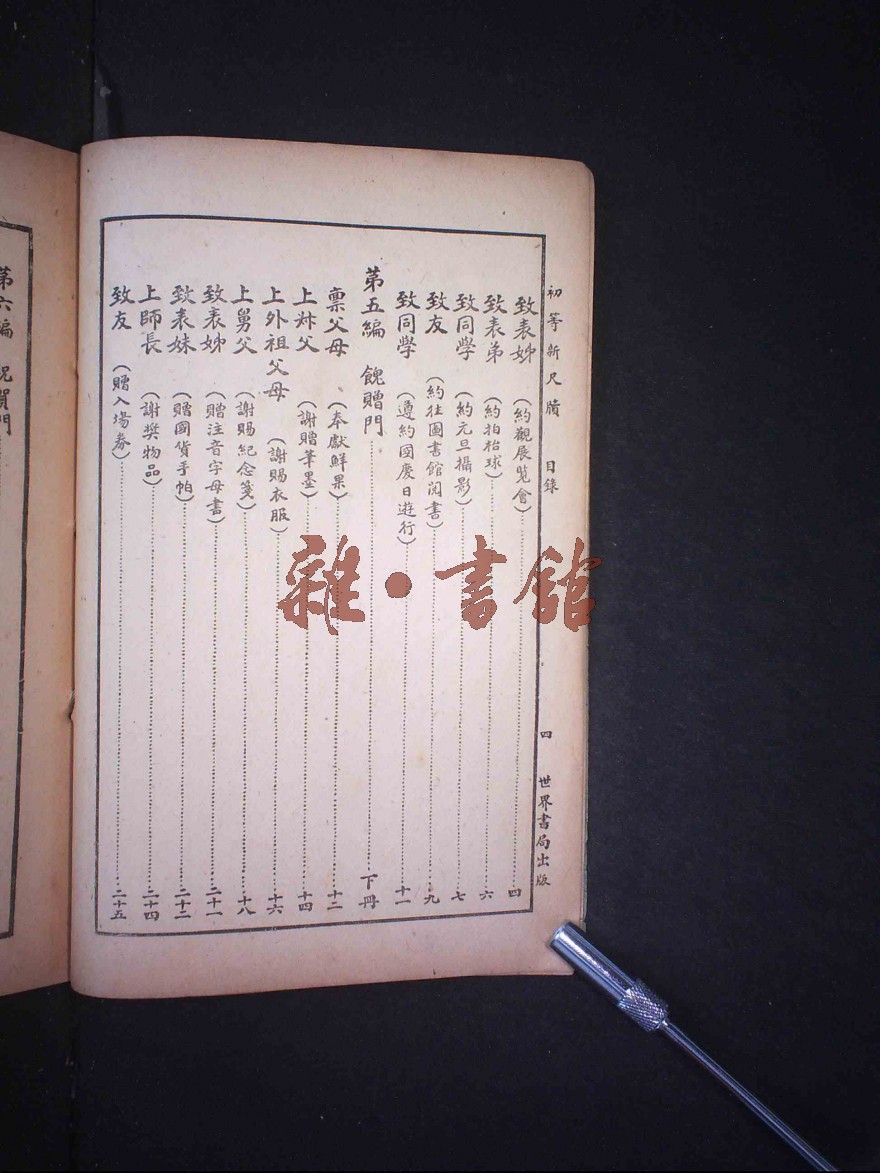 初等新尺牘 目錄 四 世界書局出版
致表姊(約觀展覽會)四
致表弟(約拍枱球)六
致同學(約元旦攝影)七
致友(約往圖書館閱書)九
致同學(遵約國慶日遊行)十一
第五編 餽贈門 下冊
禀父母(奉獻鮮果)十二
上叔父(謝贈筆墨)十四
上外祖父母(謝賜衣服)十六
上舅父(謝賜紀念箋)十八
致表姊(贈注音字母書)二十一
致表妹(贈國貨手帕)二十二
上師長(謝獎物品)二十四
致友(贈入場券)二十五
第六編 祝賀門
雜·書館